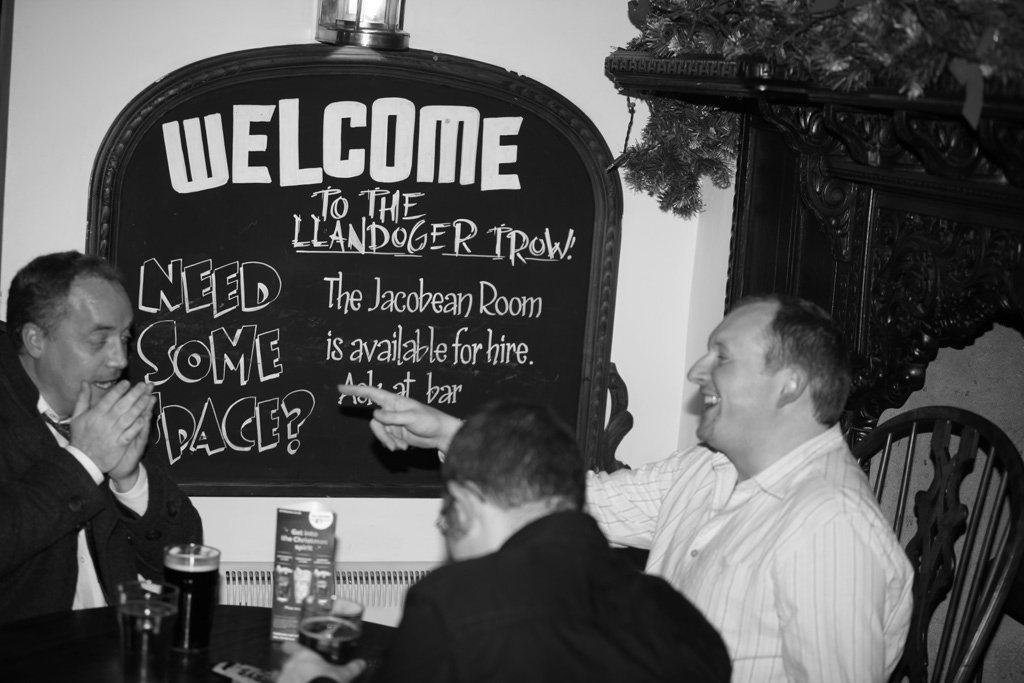 WELCOME
TO THE
LLANDOGER TROW!
NEED
SOME
SPACE?
The Jacobean Room
is available for hire.
Ask at bar
Get into
the Christmas
spirit